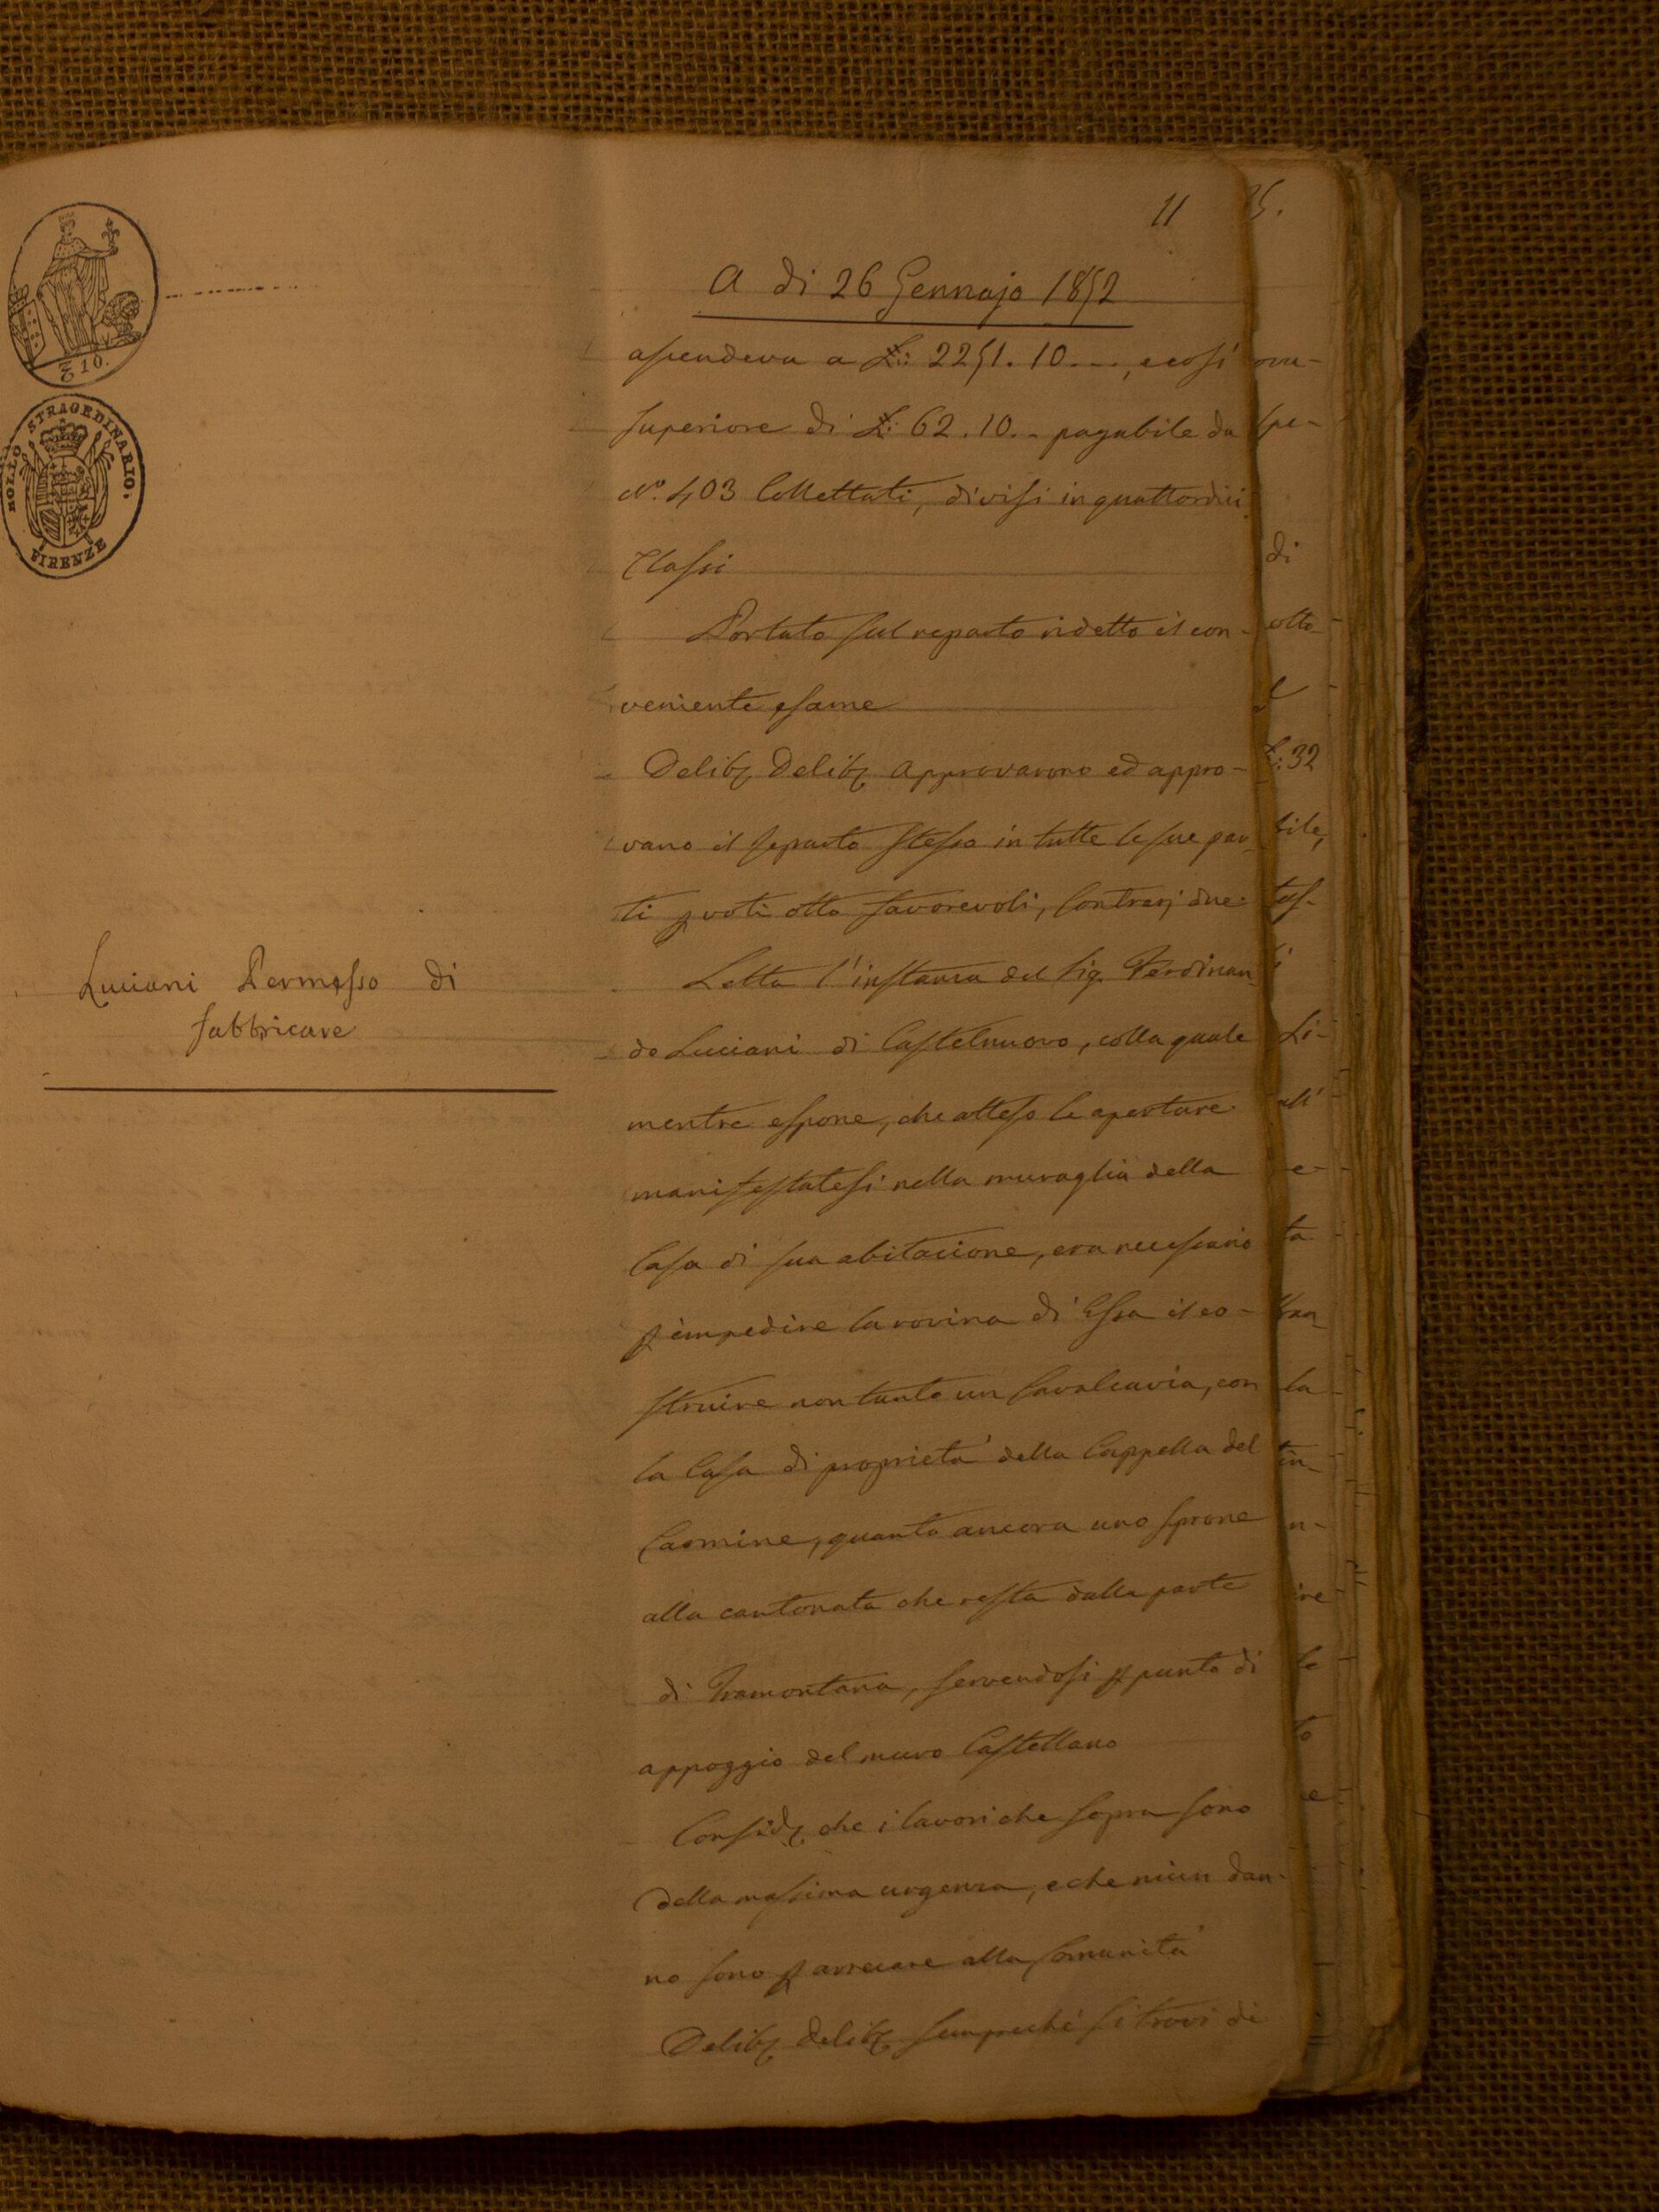 11
25.
A di 26 Gennajo 1852
ascendeva a £: 2251. 10. --, e così
superiore di £: 62. 10. - pagabile da
N°. 403 Collettati, divisi in quattordici
Classi
Portato sul reparto ridetto il con-
veniente esame
Delib. Delib. Approvarono ed appro-
vano il reparto stesso in tutte le sue par-
ti p voti otto favorevoli, Contrarj due
Letta l'instanza del Sig. Ferdinan-
do Luciani di Castelnuovo, colla quale
mentre espone, che atteso le aperture
manifestatesi nella muraglia della
Casa di sua abitazione, era necessario
p impedire la rovina di Essa il co-
struire non tanto un Cavalcavia, con
la Casa di proprietà della Cappella del
Carmine, quanto ancora uno sprone
alla cantonata che resta dalla parte
di Tramontana, servendosi p punto di
appoggio del muro Castellano
Consid. che i lavori che sopra sono
della massima urgenza, e che niun dan-
no sono p arrecare alla Comunità
Delib. delib. sempreché si trovi di
Luciani Permesso di
fabbricare
T 10.
BOLLO STRAORDINARIO.
FIRENZE
ova-
spe-
di
otto
£: 32
bile,
Li-
all'
e-
ta
la
tin-
n-
ire
le
to
e